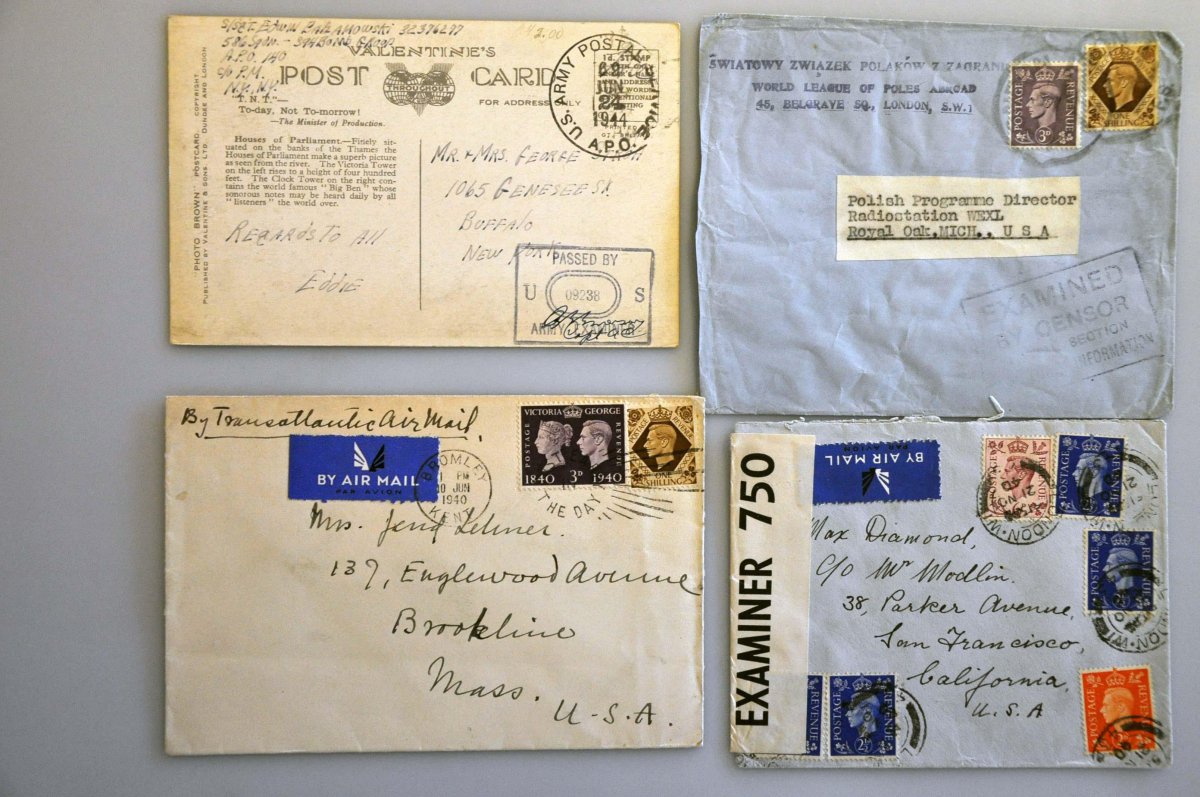 S/SGT
586 SQDN - 394 BOMB GROUP
A.P.O. 140
c/o P.M.
N.Y., N.Y.
$2.00
VALENTINE'S
POST CARD
THROUGHOUT
FOR ADDRESS ONLY
"T.N.T."—
To-day, Not To-morrow!
—The Minister of Production.
Houses of Parliament.—Finely sit-
uated on the banks of the Thames the
Houses of Parliament make a superb picture
as seen from the river. The Victoria Tower
on the left rises to a height of four hundred
feet. The Clock Tower on the right con-
tains the world famous "Big Ben" whose
sonorous notes may be heard daily by all
"listeners" the world over.
"PHOTO BROWN" POSTCARD. COPYRIGHT.
PUBLISHED BY VALENTINE & SONS, LTD. DUNDEE AND LONDON
REGARDS TO ALL
EDDIE
U.S. ARMY POSTAL SERVICE
JUN
24
1944
A.P.O.
MR. & MRS. GEORGE
1065 GENESEE ST.
BUFFALO
NEW YORK
PASSED BY
U 09238 S
ARMY EXAMINER
ŚWIATOWY ZWIĄZEK POLAKÓW Z ZAGRANICY
WORLD LEAGUE OF POLES ABROAD
45, BELGRAVE SQ., LONDON, S.W.1
POSTAGE REVENUE
3D
POSTAGE REVENUE
ONE SHILLING
Polish Programme Director
Radiostation WEXL
Royal Oak,MICH., U S A
EXAMINED
CENSOR
SECTION
INFORMATION
By Transatlantic Air Mail,
BY AIR MAIL
PAR AVION
BROMLEY
PM
JUN
1940
KENT
VICTORIA GEORGE
POSTAGE REVENUE
1840 3D 1940
POSTAGE REVENUE
ONE SHILLING
THE DAY
Mrs.
137, Englewood Avenue
Brookline
Mass.
U-S.A.
EXAMINER 750
BY AIR MAIL
PAR AVION
POSTAGE REVENUE
POSTAGE REVENUE
Max Diamond,
c/o Mr Modlin.
38, Parker Avenue,
San Francisco,
California,
U.S.A
POSTAGE REVENUE
2½D
REVENUE
POSTAGE REVENUE
2½D
POSTAGE REVENUE